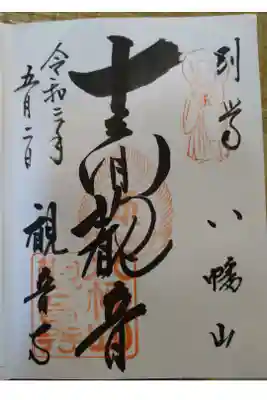 別当 八幡山
十一面観音
観音寺
令和三年
五月二日